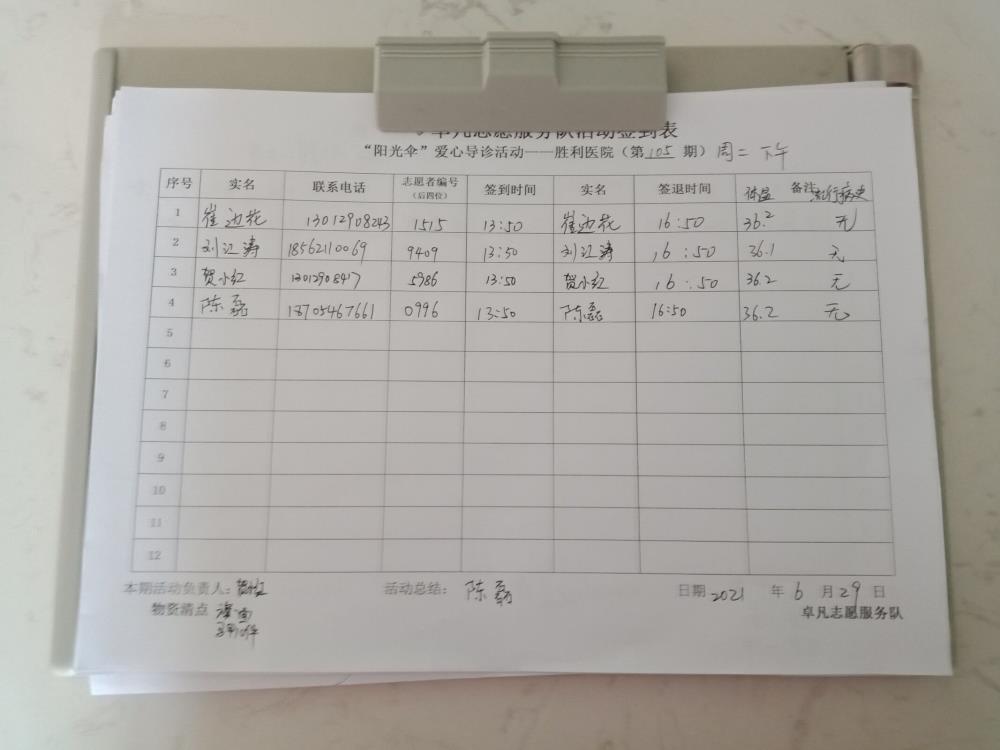 卓凡志愿服务队活动签到表
“阳光伞”爱心导诊活动——胜利医院（第 105 期）周二 下午
序号 实名 联系电话 志愿者编号（后四位） 签到时间 实名 签退时间 体温 备注 流行病史
1 崔边花 13012908243 1515 13:50 崔边花 16:50 36.2 无
2 刘江涛 18562110069 9409 13:50 刘江涛 16:50 36.1 无
3 贺小红 1301290847 5986 13:50 贺小红 16:50 36.2 无
4 陈磊 13705467661 0996 13:50 陈磊 16:50 36.2 无
5
6
7
8
9
10
11
12
本期活动负责人：贺小红 活动总结：陈磊 日期 2021 年 6 月 29 日
物资清点 卓凡志愿服务队